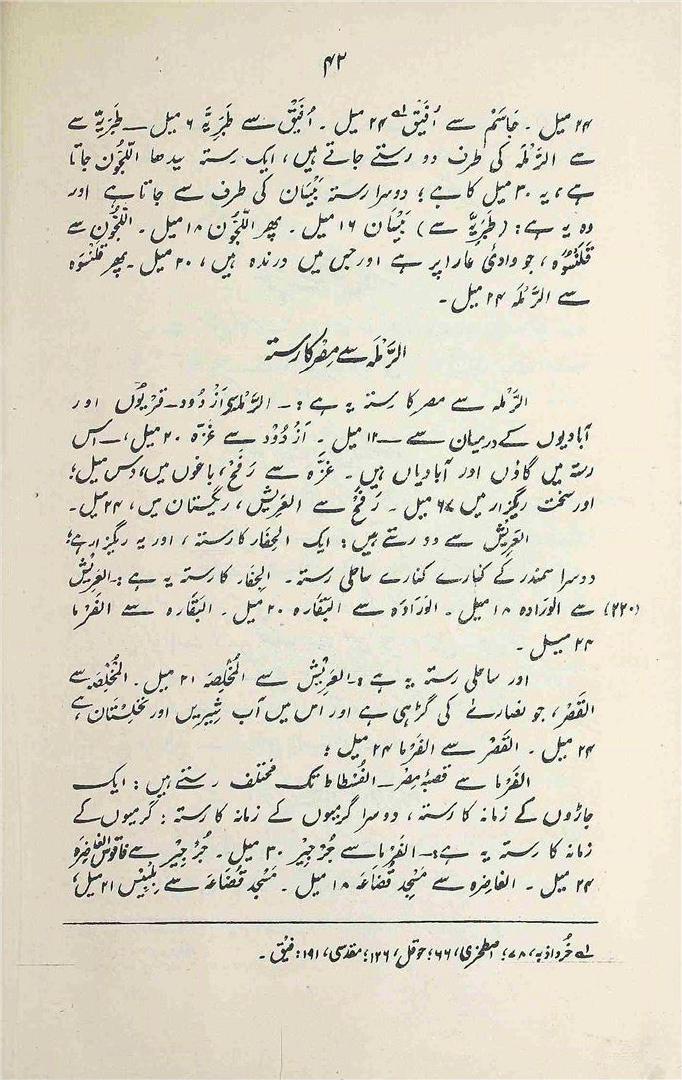 ۴۲
۲۴ میل ۔ جَاسَم سے اُفَیْق لہ ۲۴ میل ۔ اُفَیْق سے طَبَرِیَّہ ۶ میل ــ طَبَرِیَّہ سے
سے الرَّمْلَہ کی طرف دو رستے جاتے ہیں، ایک رستہ سیدھا اللَّجُّون جاتا
ہے، یہ ۲۰ میل کا ہے؛ دوسرا رستہ بَیْسَان کی طرف سے جاتا ہے اور
وہ یہ ہے: (طَبَرِیَّہ سے) بَیْسَان ۱۶ میل ۔ پھر اللَّجُّون ۱۸ میل ۔ اللَّجُّون سے
قَلَنْسُوَہ، جو وادیٔ عارا پر ہے اور جس میں درندہ ہیں، ۲۰ میل ۔ پھر قلنسوہ
سے الرَّمْلَہ ۲۴ میل ۔
الرَّمْلَہ سے مِصْر کا رستہ
الرَّمْلَہ سے مصر کا رستہ یہ ہے :۔ الرَّمْلَہ سے اَزْدُود ــ قریوں اور
آبادیوں کے درمیان سے ــ ۱۲ میل ۔ اَزْدُوْد سے غَزَّہ ۲۰ میل، ــ اس
رستہ میں گاؤں اور آبادیاں ہیں ۔ غَزَّہ سے رَفَحْ، باغوں میں، دس میل؛
اور سخت ریگزار میں ۶ میل ۔ رَفَحْ سے العَرِیْش، ریگستان میں، ۲۴ میل ۔
العَرِیْش سے دو رستے ہیں: ایک الجِفَار کا رستہ، اور یہ ریگزار ہے؛
دوسرا سمندر کے کنارے کنارے ساحلی رستہ ۔ الجِفَار کا رستہ یہ ہے :۔ العَرِیْش
(۲۲۰) سے الوَرَادہ ۱۸ میل ۔ الوَرَادَہ سے البَقَّارہ ۲۰ میل ۔ البَقَّارہ سے الفَرَما
۲۴ میل ۔
اور ساحلی رستہ یہ ہے :۔ العَرِیْش سے المُخْلِصَہ ۲۱ میل ۔ المُخْلِصَہ سے
القَصْر، جو نصاریٰ کی گڑھی ہے اور اس میں آب شِیریں اور نخلستان ہے
۲۴ میل ۔ القَصْر سے الفَرَما ۲۴ میل ؛
الفَرَما سے قصبۂ مِصْر ــ الفُسْطَاط تک مختلف رستے ہیں: ایک
جاڑوں کے زمانہ کا رستہ، دوسرا گرمیوں کے زمانہ کا رستہ : گرمیوں کے
زمانہ کا رستہ یہ ہے :۔ الفَرَما سے جُرْجِیْر ۳۰ میل ۔ جُرْجِیْر سے فاقوس الغاضِرَہ
۲۴ میل ۔ الغاضِرَہ سے مَسْجِد قُضَاعَہ ۱۸ میل ۔ مَسْجِد قُضَاعَہ سے بِلْبِیْس ۲۱ میل،
لہ خُرداذبہ، ۷۸؛ اصطخری، ۶۶؛ حوقل، ۱۲۶؛ مقدسی، ۱۹۱: فِیْق ۔